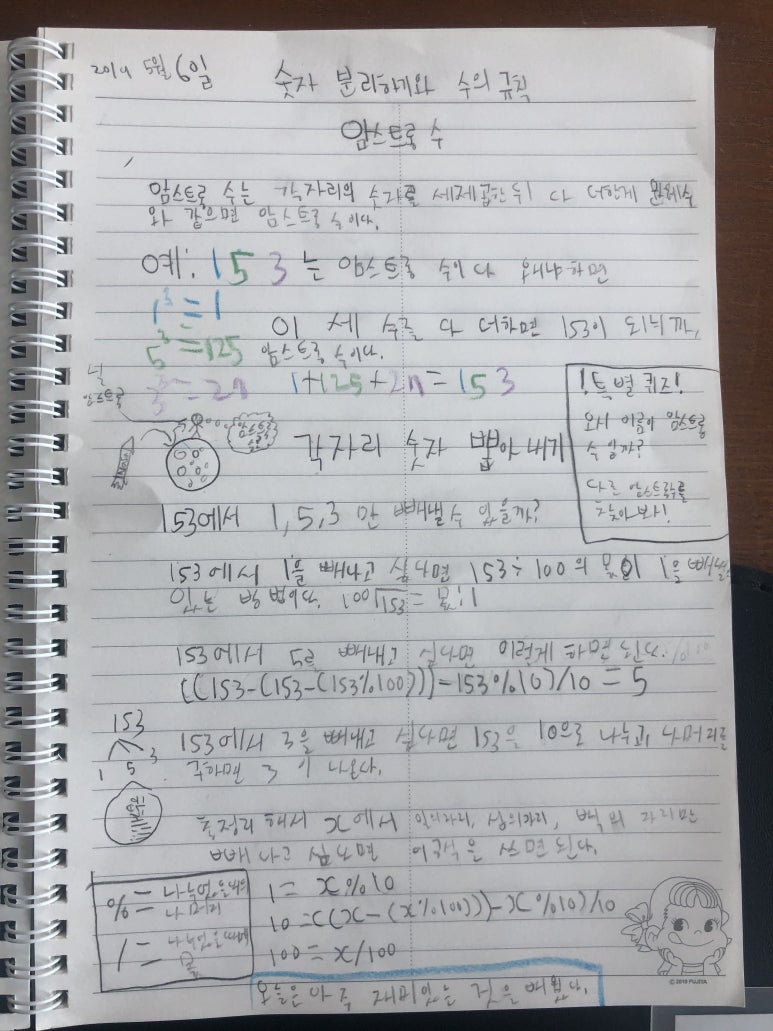 2019 5월 6일
숫자 분리하기와 수의 규칙
암스트롱 수
암스트로 수는 각자리의 숫자를 세제곱한 뒤 다 더한게 원래수
와 같으면 암스트로 수이다.
예: 153는 암스트롱 수이다 왜냐하면
1³=1
이 세 수를 다 더하면 153이 되니까,
5³=125 암스트롱 수이다.
3³=27 1+125+27=153
닐
암스트롱
암스트롱
!특별 퀴즈!
왜 이름이 암스트롱
수 일까?
다른 암스트롱수를
찾아보자!
각자리 숫자 뽑아내기
153에서 1,5,3 만 빼낼수 있을까?
153에서 1을 빼내고 싶다면 153÷100의 몫이 1을 빼낼수
있는 방법이다. 100 153 = 몫:1
153에서 5를 빼내고 싶다면 이렇게 하면 된다.
((153-(153-(153%100)))-153%10)/10 = 5
153
1 5 3
153에서 3을 빼내고 싶다면 153을 10으로 나누고, 나머지를
구하면 3이 나온다.
총정리 해서 x에서 일의자리, 십의자리, 백의 자리만
빼내고 싶다면 이 공식을 쓰면 된다.
% = 나누었을때의
나머지
/ = 나누었을때의
몫
1= x%10
10=((x-(x%100))-x%10)/10
100= x/100
©2019 FUJIYA
오늘은 아주 재미있는 것을 배웠다.